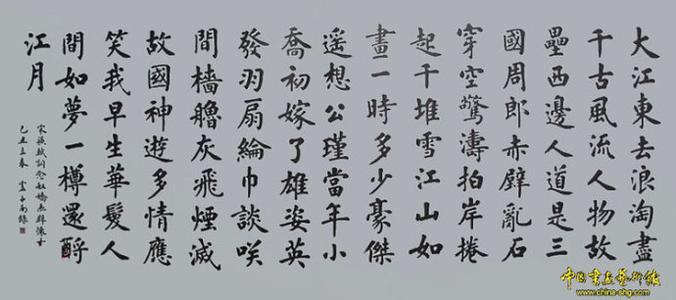 大江東去浪淘盡
千古風流人物故
壘西邊人道是三
國周郎赤壁亂石
穿空驚濤拍岸捲
起千堆雪江山如
畫一時多少豪傑
遥想公瑾當年小
喬初嫁了雄姿英
發羽扇綸巾談咲
間檣艣灰飛煙滅
故國神遊多情應
笑我早生華髮人
間如夢一樽還酹
江月
宋蘇軾詞念奴嬌赤壁懷古
己丑立春
中国书画艺术馆
www.china-shg.com